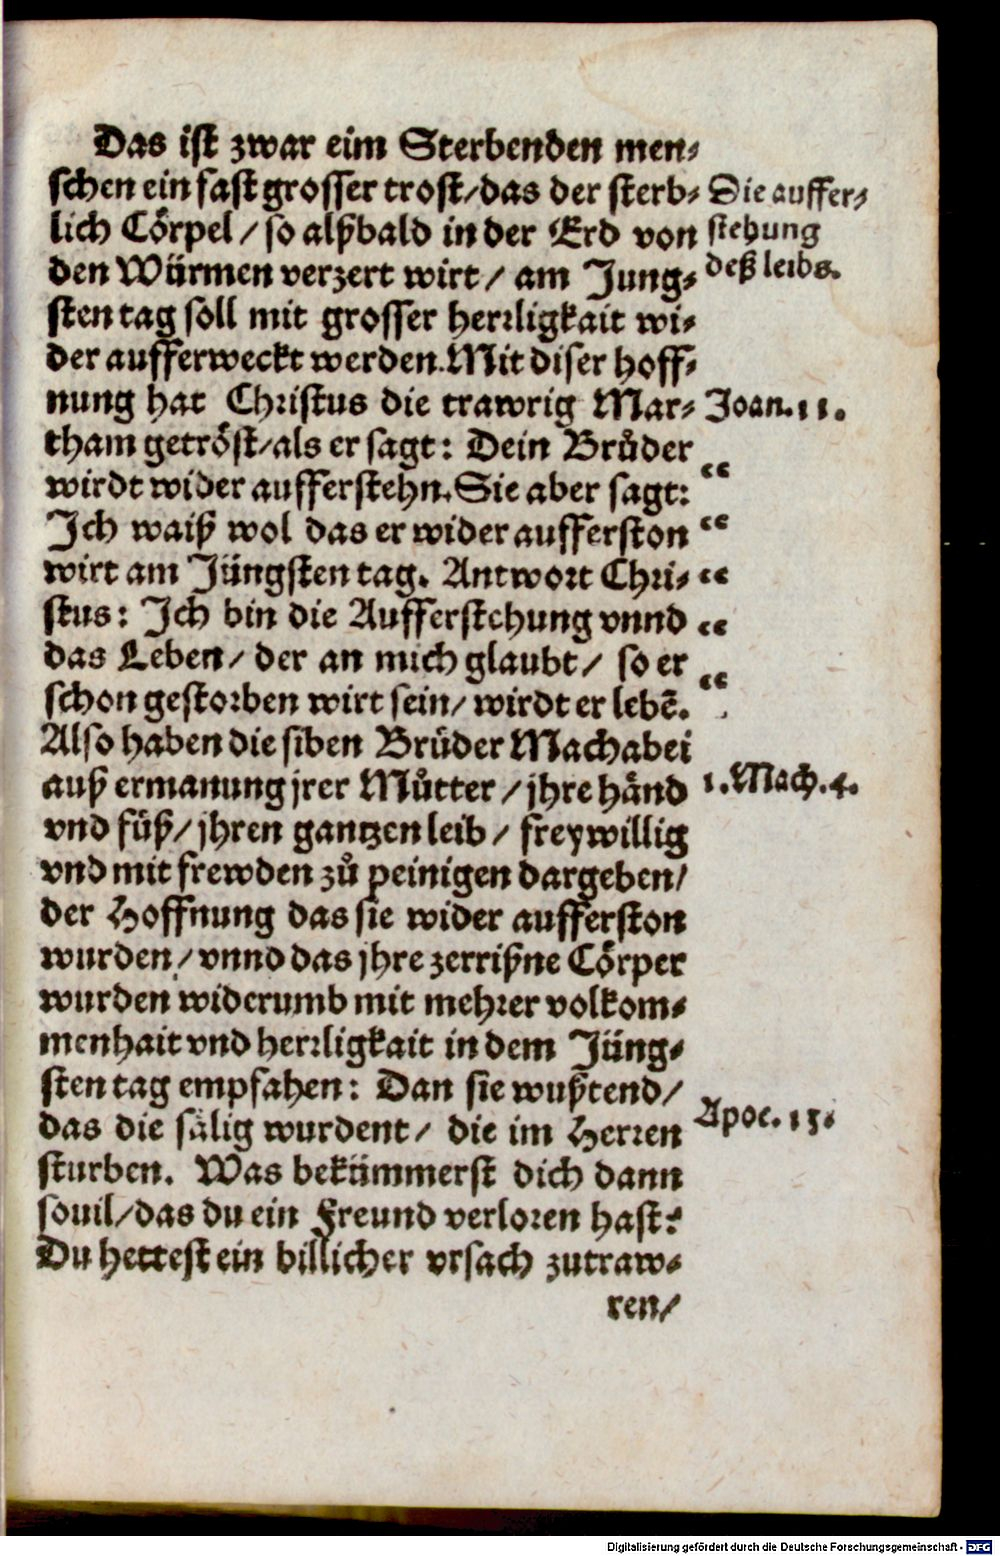 Das ist zwar eim Sterbenden men⸗
schen ein fast grosser trost/das der sterb⸗
lich Cörpel/ so alßbald in der Erd von
den Würmen verzert wirt/ am Jung⸗
sten tag soll mit grosser herrligkait wi⸗
der aufferweckt werden. Mit diser hoff⸗
nung hat Christus die trawrig Mar⸗
tham getröst/als er sagt: Dein Brůder
wirdt wider aufferstehn. Sie aber sagt:
Ich waiß wol das er wider aufferston
wirt am Jüngsten tag. Antwort Chri⸗
stus: Ich bin die Aufferstehung vnnd
das Leben/ der an mich glaubt/ so er
schon gestorben wirt sein/ wirdt er lebẽ.
Also haben die siben Brüder Machabei
auß ermanung jrer Můtter/ jhre händ
vnd füß/ jhren gantzen leib/ freywillig
vnd mit frewden zů peinigen dargeben/
der Hoffnung das sie wider aufferston
wurden/ vnnd das jhre zerrißne Cörper
wurden widerumb mit mehrer volkom⸗
menhait vnd herrligkait in dem Jüng⸗
sten tag empfahen: Dan sie wußtend/
das die sälig wurdent/ die im Herren
sturben. Was bekümmerst dich dann
souil/das du ein Freund verloren hast?
Du hettest ein billicher vrsach zutraw⸗
ren/
Die auffer⸗
stehung
deß leibs.
Joan. 11.
“
“
“
“
“
1. Mach. 4.
Apoc. 15.
Digitalisierung gefördert durch die Deutsche Forschungsgemeinschaft - DFG